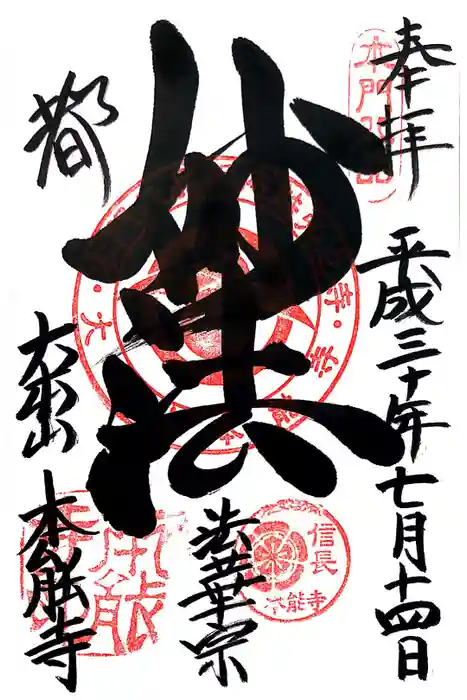 奉拝
平成三十年七月十四日
妙法
法華宗
都
大本山
本能寺
本門
信長
本能寺
本能寺